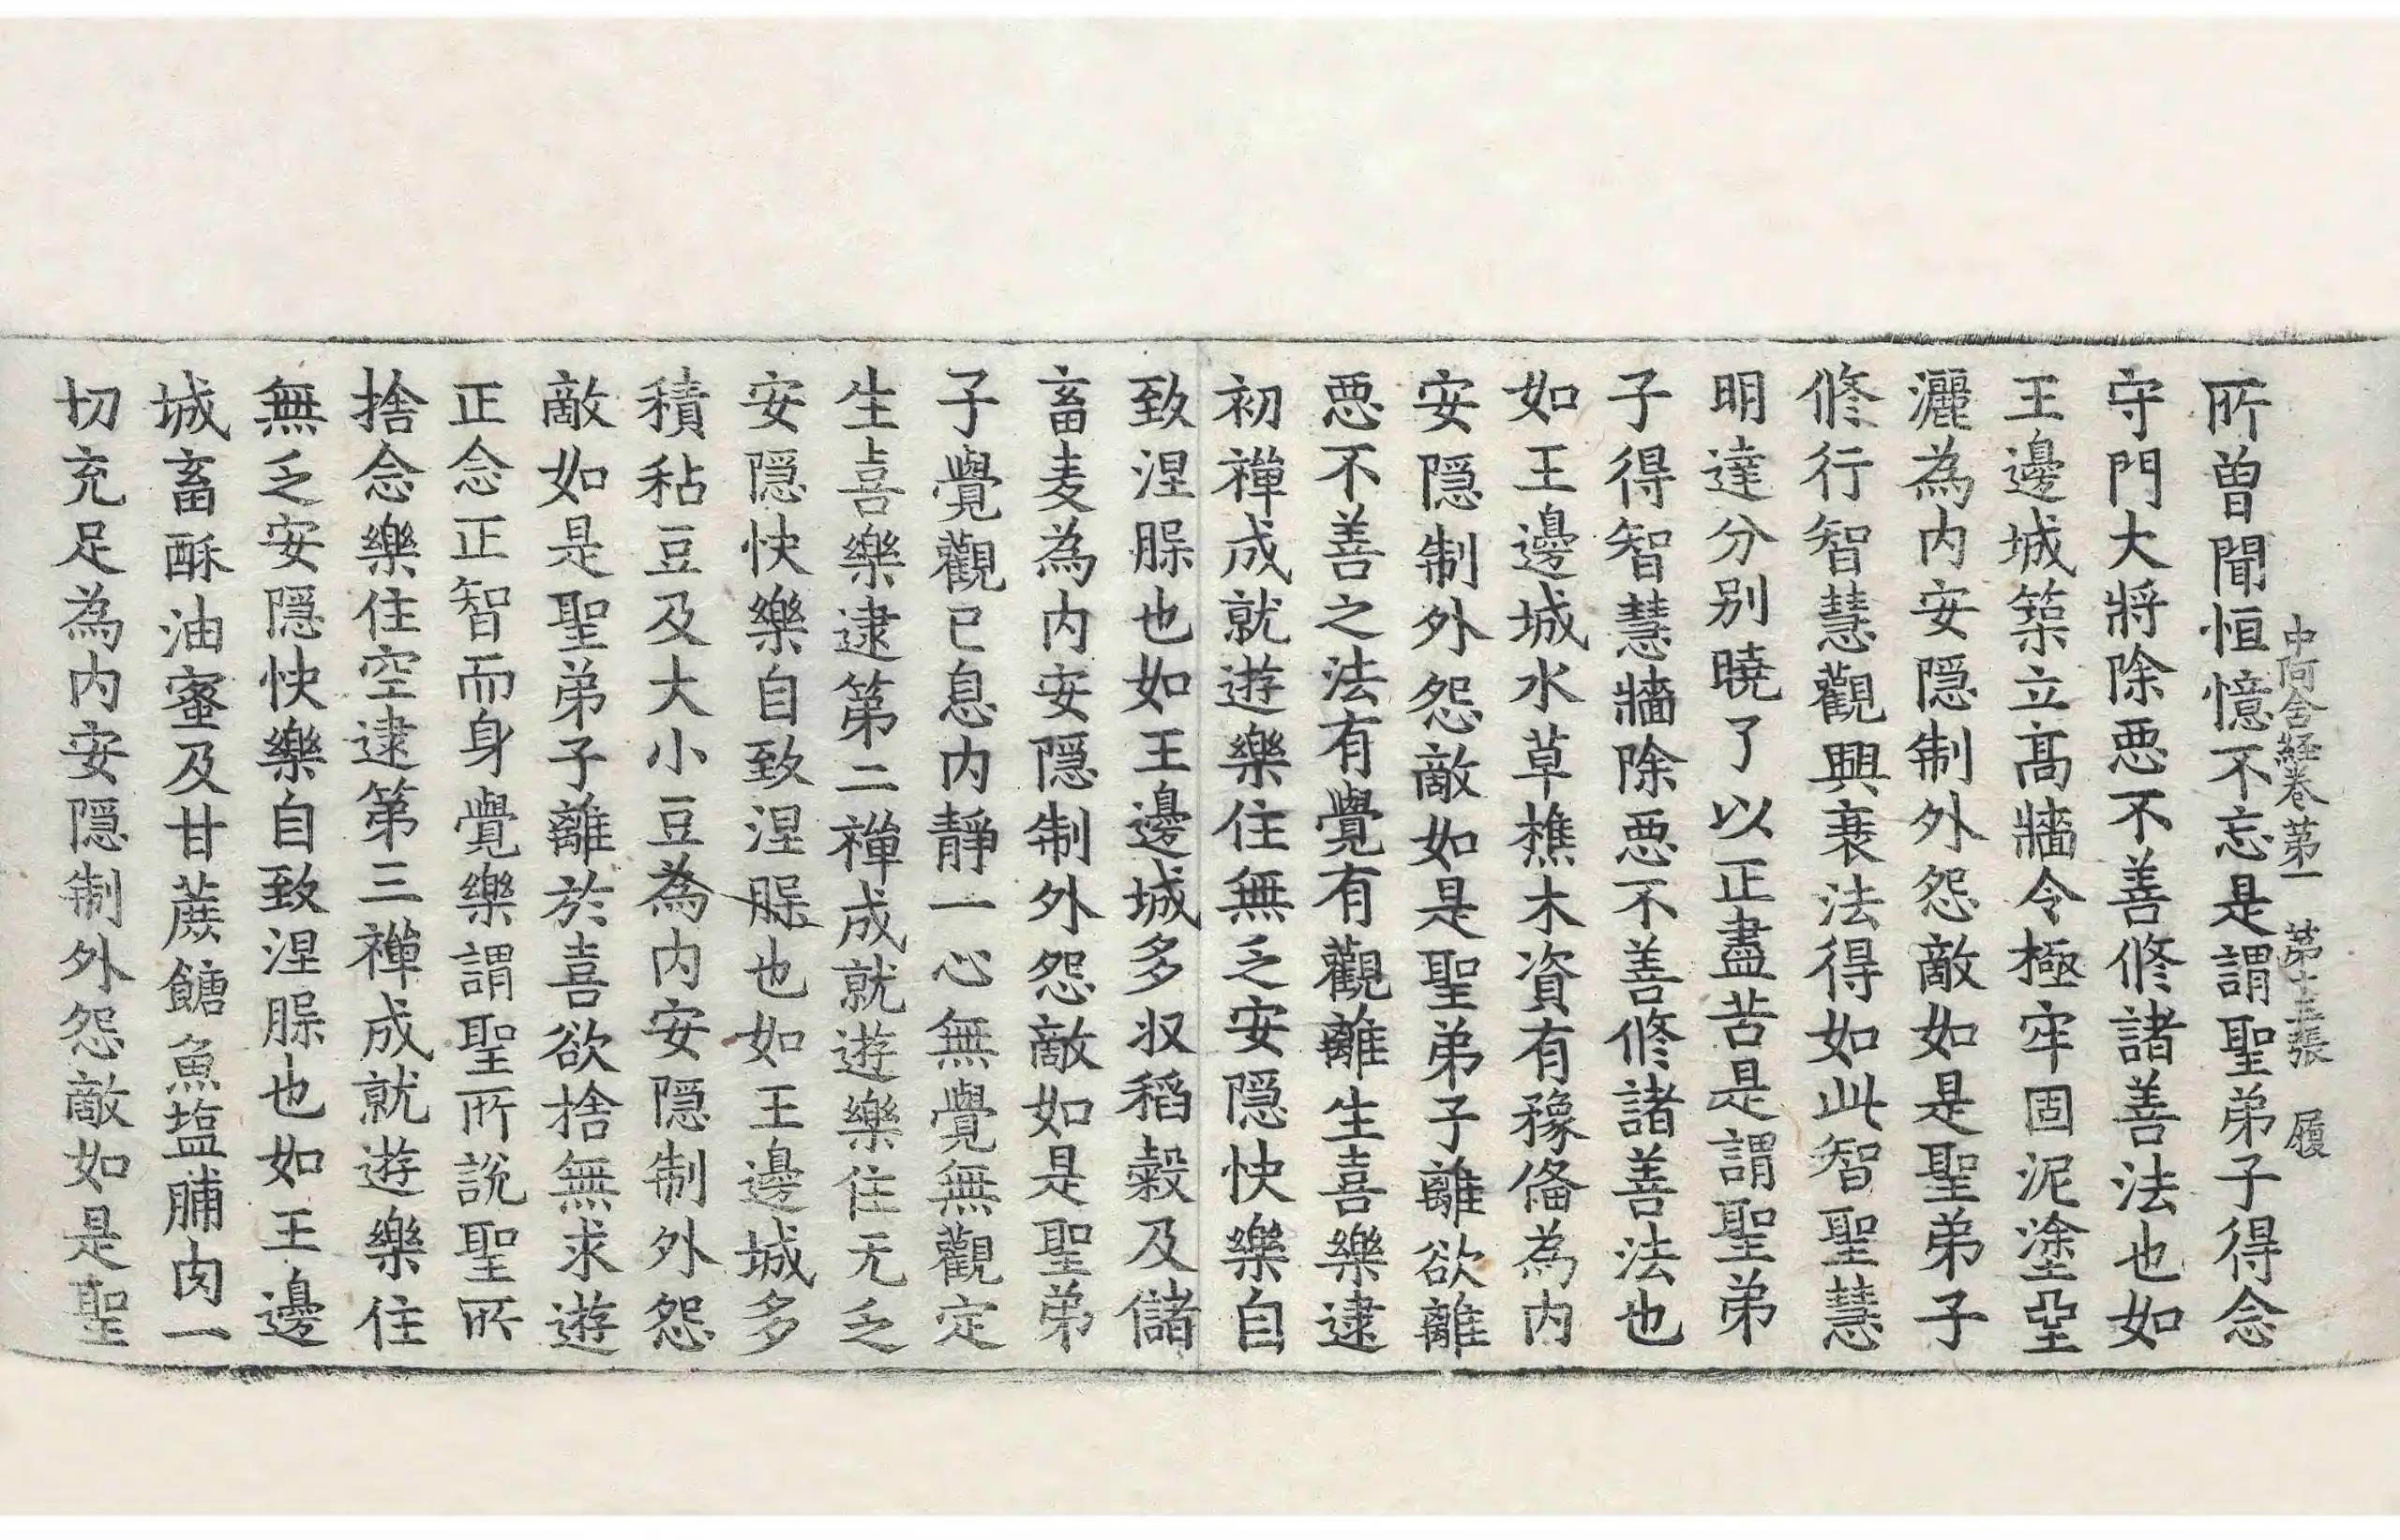 中阿含経卷第一 第十三張 履
所曽聞恒憶不忘是謂聖弟子得念
守門大將除惡不善修諸善法也如
王邊城築立髙牆令極牢固泥塗堊
灑為内安隠制外怨敵如是聖弟子
修行智慧觀興衰法得如此智聖慧
明達分别曉了以正盡苦是謂聖弟
子得智慧牆除惡不善修諸善法也
如王邊城水草樵木資有豫俻為内
安隠制外怨敵如是聖弟子離欲離
惡不善之法有覺有觀離生喜樂逮
初禪成就遊樂住無乏安隠快樂自
致涅槃也如王邊城多收稻穀及儲
畜麦為内安隠制外怨敵如是聖弟
子覺觀已息内靜一心無覺無觀定
生喜樂逮第二禪成就遊樂住无乏
安隠快樂自致涅槃也如王邊城多
積秥豆及大小豆為内安隠制外怨
敵如是聖弟子離於喜欲捨無求遊
正念正智而身覺樂謂聖所說聖所
捨念樂住空逮第三禪成就遊樂住
無乏安隠快樂自致涅槃也如王邊
城畜酥油蜜及甘蔗餹魚塩脯肉一
切充足為内安隠制外怨敵如是聖